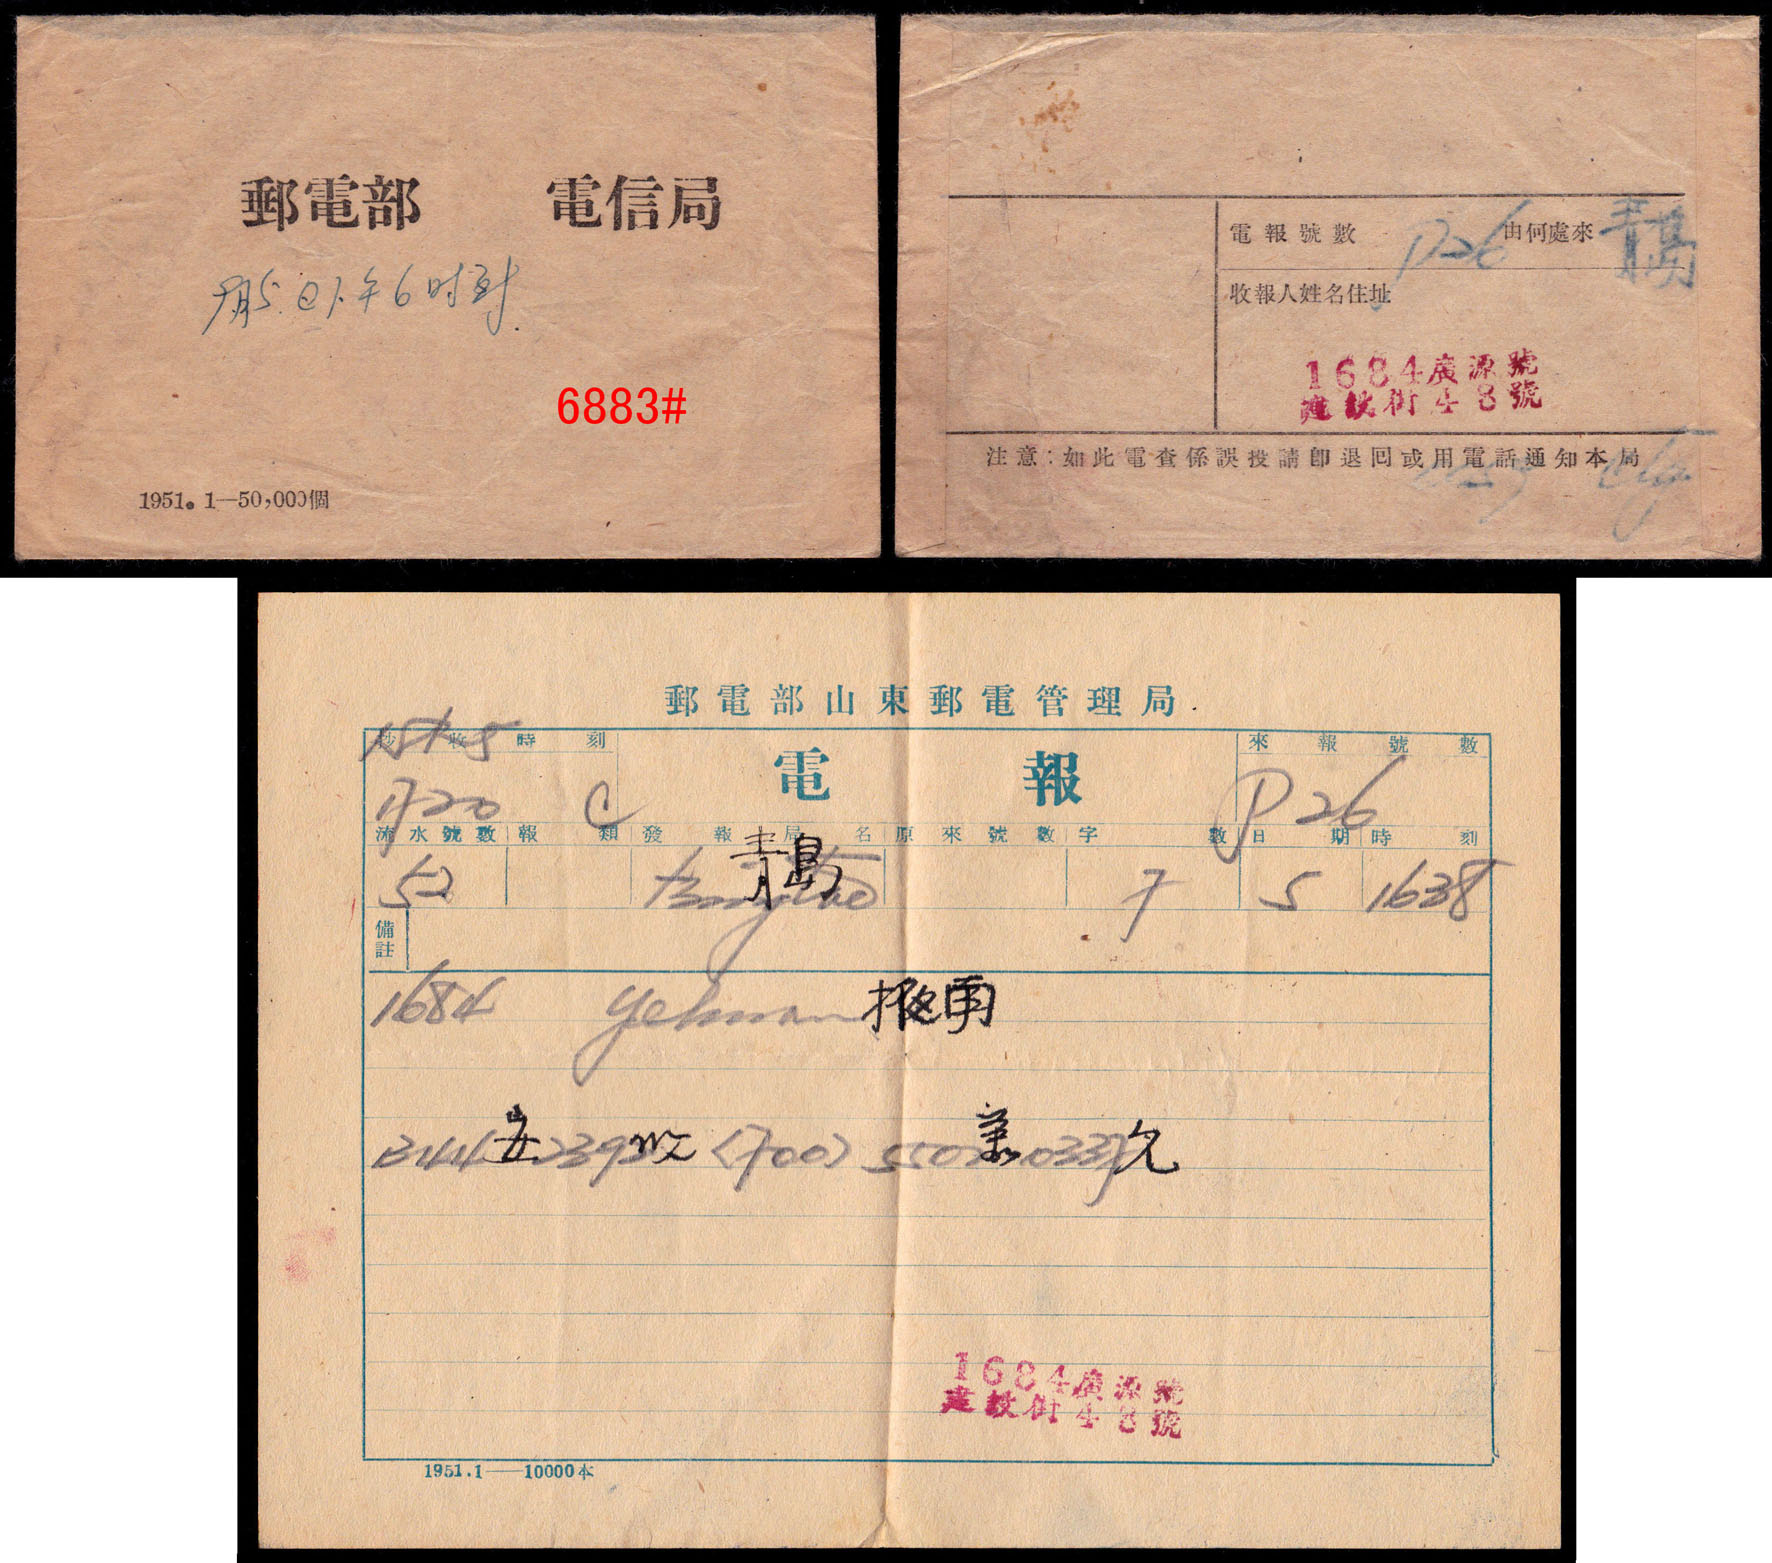 郵電部 電信局
5日下午6时到
6883#
1951.1—50,000個
電報號數 P26 由何處來 青島
收報人姓名住址
1684廣源號
建設街48號
注意:如此電查係誤投請卽退回或用電話通知本局
郵電部山東郵電管理局
鈔收時刻 電報 來報號數
1720 C P26
流水號數 報類 發報局名 原來號數 字數 日期 時刻
青島
52 tsingtao 7 5 1638
備註
1684
2392 收 (700) 5502 萬 0337 元
1684廣源號
建設街48號
1951.1—10000本